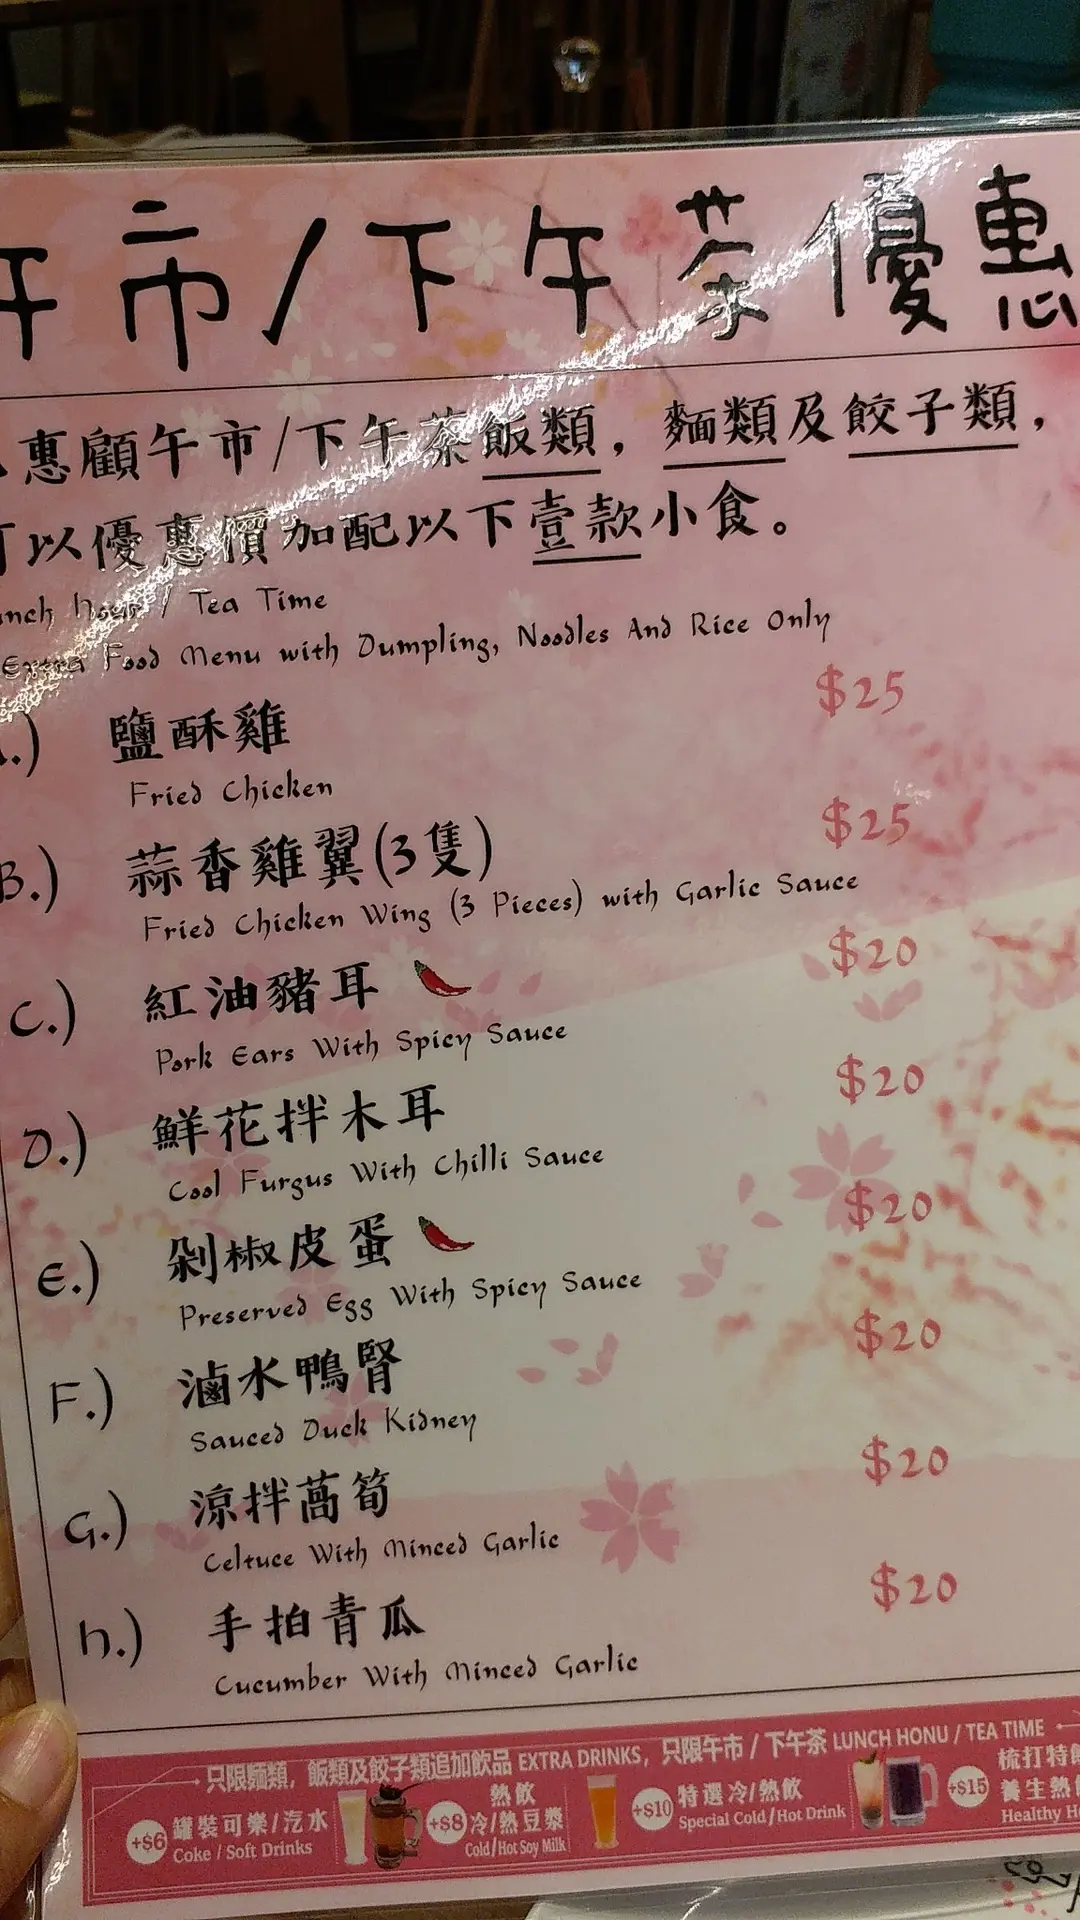 午市/下午茶優惠
惠顧午市/下午茶飯類，麵類及餃子類，
可以優惠價加配以下壹款小食。
Lunch hour / Tea Time
Extra Food Menu with Dumpling, Noodles And Rice Only
A.) 鹽酥雞 $25
Fried Chicken
B.) 蒜香雞翼(3隻) $25
Fried Chicken Wing (3 Pieces) with Garlic Sauce
C.) 紅油豬耳 $20
Pork Ears With Spicy Sauce
D.) 鮮花拌木耳 $20
Cool Furgus With Chilli Sauce
E.) 剁椒皮蛋 $20
Preserved Egg With Spicy Sauce
F.) 滷水鴨腎 $20
Sauced Duck Kidney
G.) 涼拌萵筍 $20
Celtuce With Minced Garlic
h.) 手拍青瓜 $20
Cucumber With Minced Garlic
只限麵類，飯類及餃子類追加飲品 EXTRA DRINKS，只限午市 / 下午茶 LUNCH HONU / TEA TIME
+$6 罐裝可樂/汽水
Coke / Soft Drinks
+$8 熱飲
冷/熱豆漿
Cold/Hot Soy Milk
+$10 特選 冷/熱飲
Special Cold/Hot Drink
+$15 梳打特飲
養生熱飲
Healthy